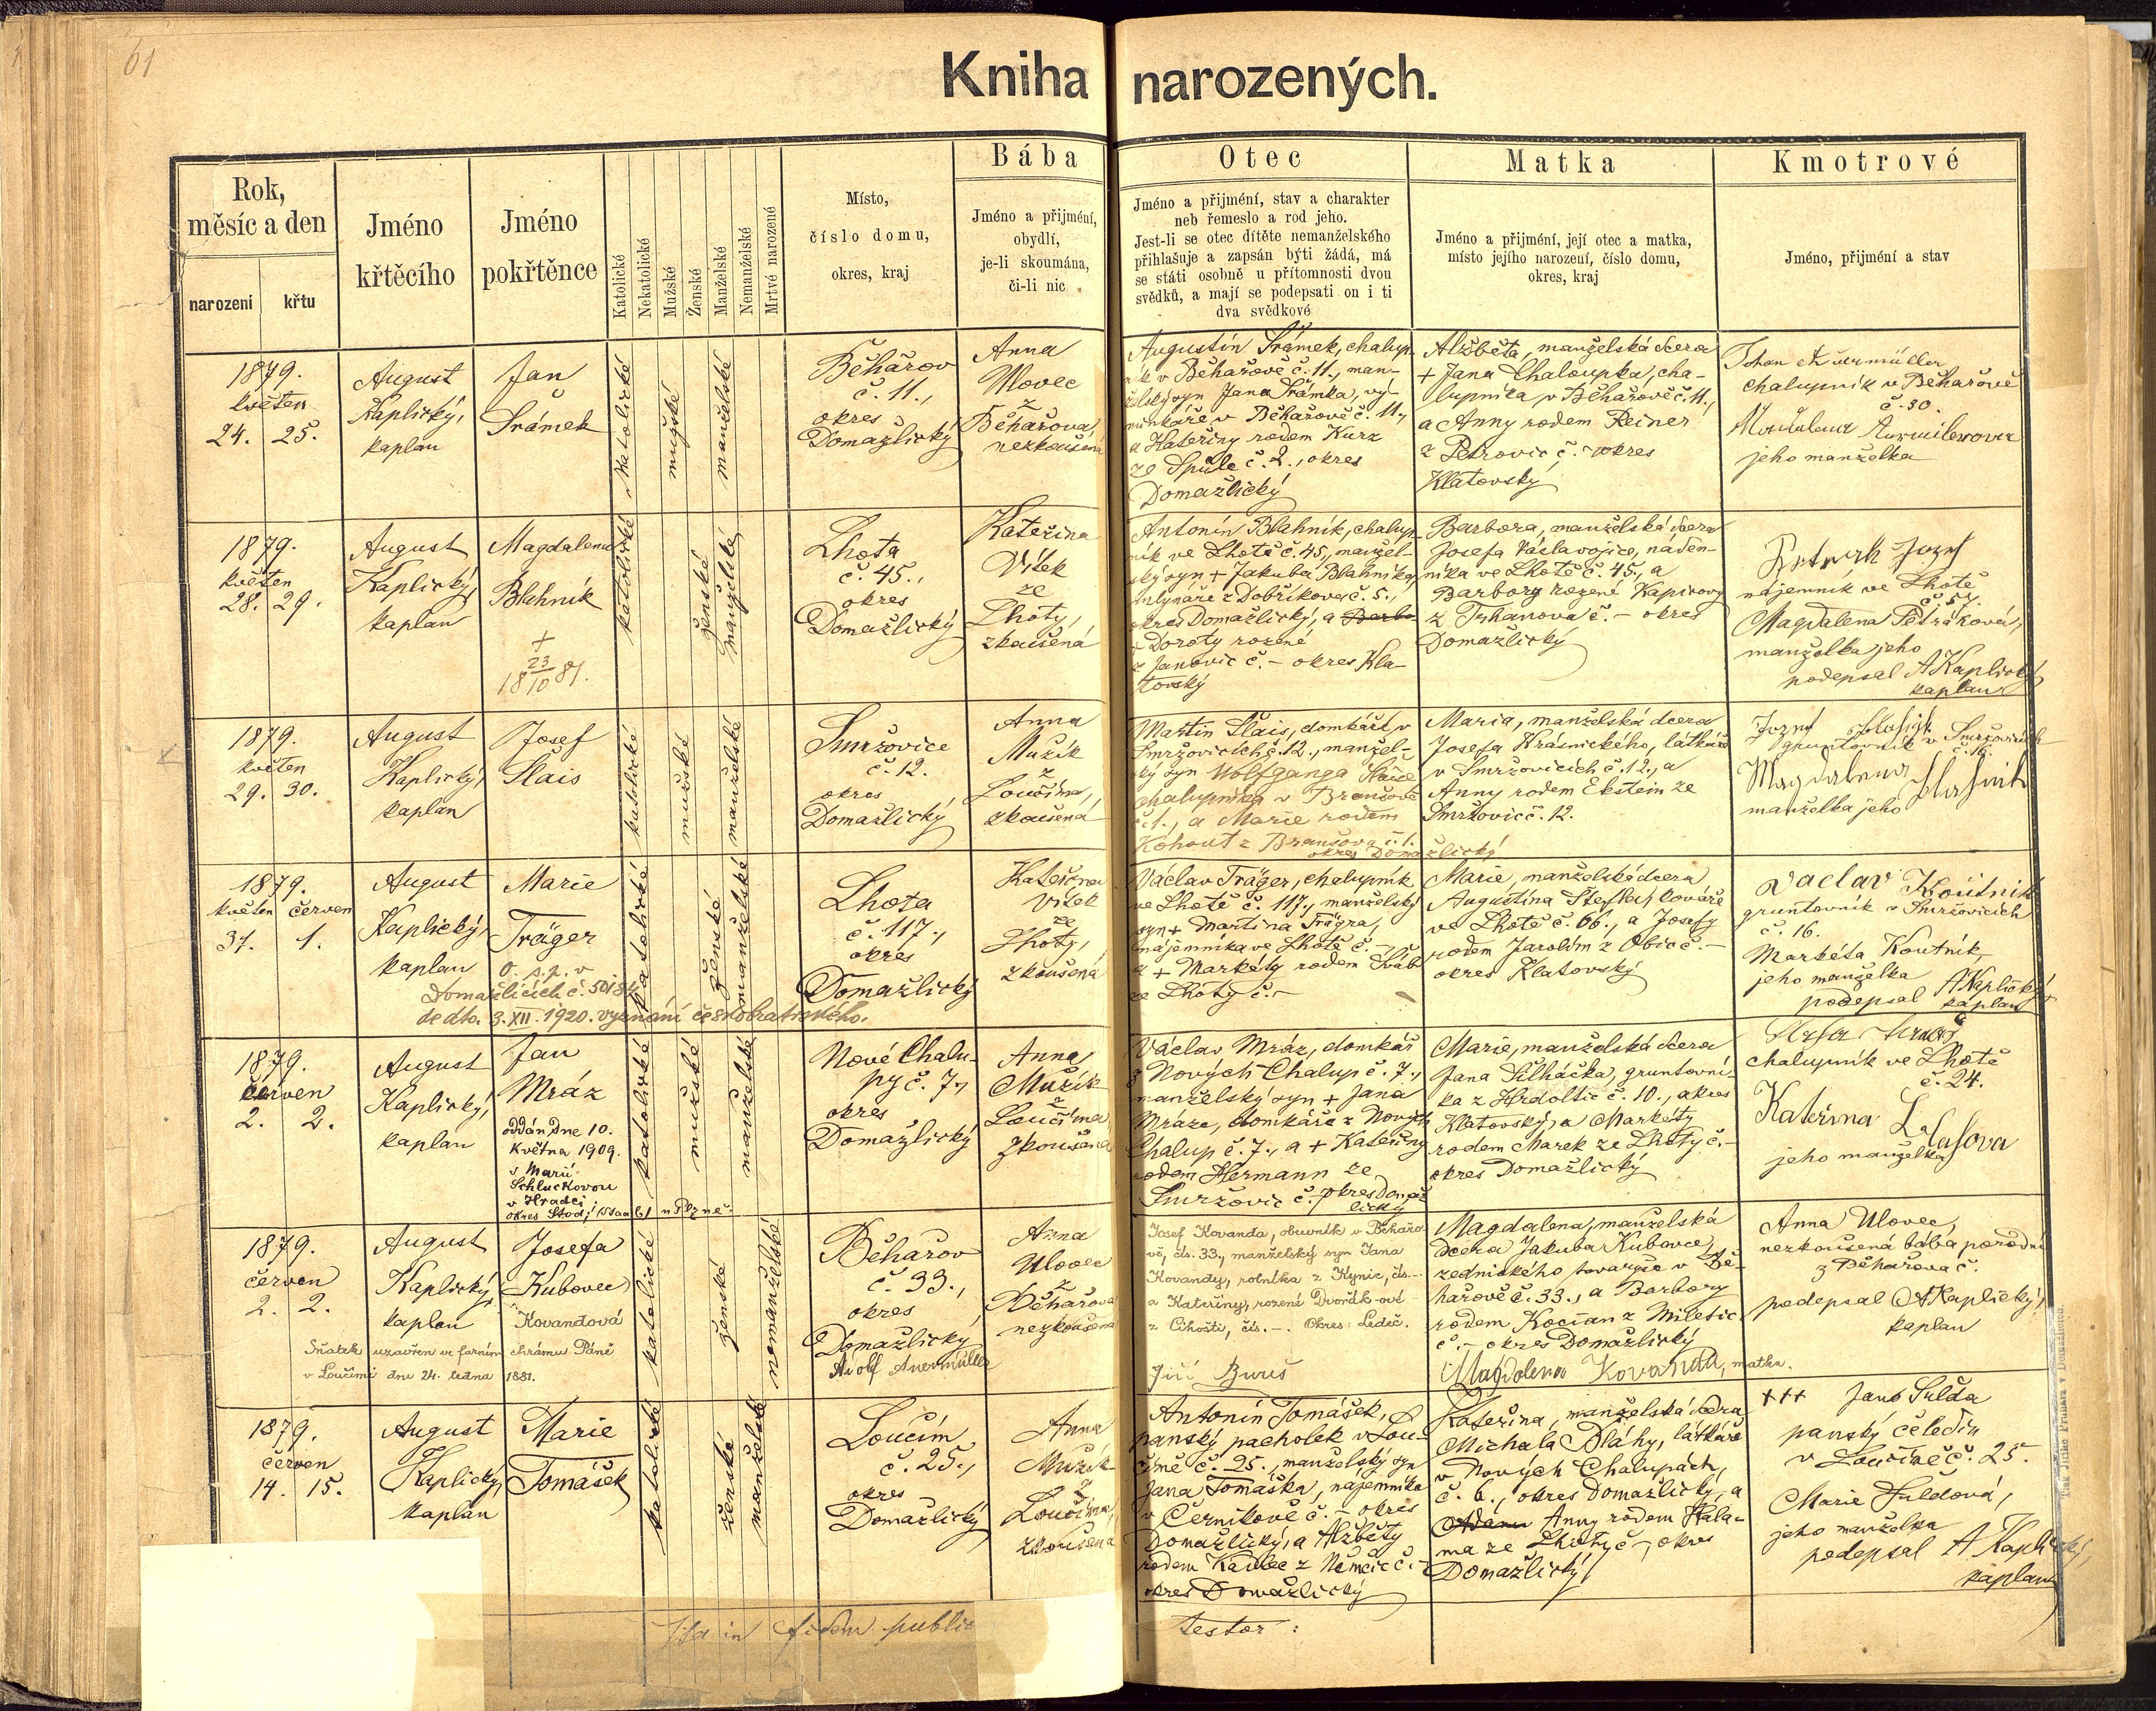 61
Kniha narozených.
Rok,
měsíc a den
narození
křtu
Jméno
křtěcího
Jméno
pokřtěnce
Katolické
Nekatolické
Mužské
Ženské
Manželské
Nemanželské
Mrtvé narozené
Místo,
číslo domu,
okres, kraj
Bába
Jméno a přijmení,
obydlí,
je-li skoumána,
či-li nic
Otec
Jméno a přijmení, stav a charakter
neb řemeslo a rod jeho.
Jest-li se otec dítěte nemanželského
přihlašuje a zapsán býti žádá, má
se státi osobně u přítomnosti dvou
svědků, a mají se podepsati on i ti
dva svědkové
Matka
Jméno a přijmení, její otec a matka,
místo jejího narození, číslo domu,
okres, kraj
Kmotrové
Jméno, přijmení a stav
1879.
květen
24. 25.
August
Kaplický,
kaplan
Jan
Šrámek
katolické
mužské
manželské
Běhařov
č. 11.,
okres
Domažlický
Anna
Ulovec
z
Běhařova,
nezkoušená
Augustin Šrámek, chalup-
ník v Běhařově č. 11., man-
želský syn Jana Šrámka, vý-
minkáře v Běhařově č. 11.,
a Kateřiny rodem Kurz
ze Spůle č. 2., okres
Domažlický
Alžběta, manželská dcera
+ Jana Chaloupka, cha-
lupníka v Běhařově č. 11.,
a Anny rodem Reiner
z Petrovic č. - okres
Klatovský
Johan
chalupník v Běhařově
č. 30.
jeho manželka
1879.
květen
28. 29.
August
Kaplický,
kaplan
Magdalena
Blahník
+
23/10 1881.
katolické
ženské
manželské
Lhota
č. 45.,
okres
Domažlický
Kateřina
Vítek
ze
Lhoty,
zkoušená
Antonín Blahník, chalup-
ník ve Lhotě č. 45., manžel-
ský syn + Jakuba Blahníka,
mlynáře z Dobříkova č. 5.,
okres Domažlický, a Barbo
+ Doroty rozené
z Janovic č. - okres Kla-
tovský
Barbora, manželská dcera
Josefa Václavovice, náden-
níka ve Lhotě č. 45., a
Barbory rozené Kapicovy
z Trhanova č. - okres
Domažlický
Jozef
nájemník ve Lhotě
č. 57.
Magdalena Petráková,
manželka jeho
podepsal A Kaplický
kaplan
1879.
květen
29. 30.
August
Kaplický,
kaplan
Josef
Šlais
katolické
mužské
manželské
Smržovice
č. 12.
okres
Domažlický
Anna
Mužík
z
Loučíma,
zkoušená
Martin Šlais, domkář v
Smržovicích, č. 12., manžel-
ský syn Wolfganga Šlaise
chalupníka v Branšově
č. 1., a Marie rodem
Kohout z Branšova č. 1.
okres Domažlický
Maria, manželská dcera
Josefa Krásnického, látkáře
v Smržovicích č. 12., a
Anny rodem Ekstein ze
Smržovic č. 12.
Jozef
gruntovník v Smržovicích
č. 16.
Magdalena
manželka jeho
1879.
květen červen
31. 1.
August
Kaplický,
kaplan
Marie
Träger
O. s. p. v
Domažlicích č. 50184
de dto. 3. XII. 1920. vyznání českobratrského.
katolické
ženské
manželské
Lhota
č. 117.,
okres
Domažlický
Kateřina
Vítek
ze
Lhoty,
zkoušená
Václav Träger, chalupník
ve Lhotě č. 117., manželský
syn + Martina Trägra,
nájemníka ve Lhotě č. -
a + Markéty rodem Šváb
ze Lhoty č. -
Marie, manželská dcera
Augustina Štefla, kováře
ve Lhotě č. 66., a Josefy
rodem Jarolím z Obic č. -
okres Klatovský
Vaclav Koutnik
gruntovník v Smržovicích
č. 16.
Markéta Koutník,
jeho manželka
podepsal A Kaplický
kaplan
1879.
červen
2. 2.
August
Kaplický,
kaplan
Jan
Mráz
oddán dne 10.
Května 1909.
s Marií
Schluckovou
v Hradci
okres Stod,
katolické
mužské
manželské
Nové Chalu-
py č. 7.,
okres
Domažlický
Anna
Mužík
z
Loučíma,
zkoušená
Václav Mráz, domkář
z Nových Chalup č. 7.,
manželský syn + Jana
Mráze, domkáře z Nových
Chalup č. 7., a + Kateřiny
rodem Hermann ze
Smržovic č. - okres Domaž
lický
Marie, manželská dcera
Jana Silháčka, gruntovní-
ka z Hrdoltic č. 10., okres
Klatovský, a Markéty
rodem Marek ze Lhoty č. -
okres Domažlický
chalupník ve Lhotě
č. 24.
Kateřina
jeho manželka
1879.
červen
2. 2.
August
Kaplický,
kaplan
Josefa
Kubovec
Kovandová
Sňatek uzavřen ve farním chrámu Páně
v Loučimi dne 24. ledna 1881.
katolické
ženské
nemanželské
Běhařov
č. 33.,
okres
Domažlický
Adolf Auermüller
Anna
Ulovec
z
Běhařova
nezkoušená
Josef Kovanda, obuvník v Běhařo-
vě, čís. 33., manželský syn Jana
Kovandy, rolníka z Kynic, čís. -.
a Kateřiny, rozené Dvořák-ové
z Cihošti, čís. -. Okres: Ledeč.
Jiří Bureš
Magdalena, manželská
dcera Jakuba Kubovce,
zednického tovaryše v Bě-
hařově č. 33., a Barbory
rodem Kocian z Miletic
č. - okres Domažlický
Magdalena Kovanda, matka.
Anna Ulovec,
nezkoušená bába porodní
z Běhařova č.
podepsal A Kaplický,
kaplan
1879.
červen
14. 15.
August
Kaplický,
kaplan
Marie
Tomášek
katolické
ženské
manželské
Loučím
č. 25.,
okres
Domažlický
Anna
Mužík
z
Loučíma,
zkoušená
Antonín Tomášek,
panský pacholek v Lou-
čímě č. 25., manželský syn
Jana Tomáška, nájemníka
v Černíkově č. - okres
Domažlický, a Alžběty
rodem Kadlec z Němčic č. -
okres Domažlický
Kateřina, manželská dcera
Michala Bláhy, látkáře
v Nových Chalupách,
č. 6., okres Domažlický, a
Anny rodem Hála-
ma ze Lhoty č. -, okres
Domažlický
+++ Jano Sulda
panský čeledín
v Loučímě č. 25.
Marie Suldová,
jeho manželka
podepsal A Kaplický,
kaplan
Ita in fidem public
testor: